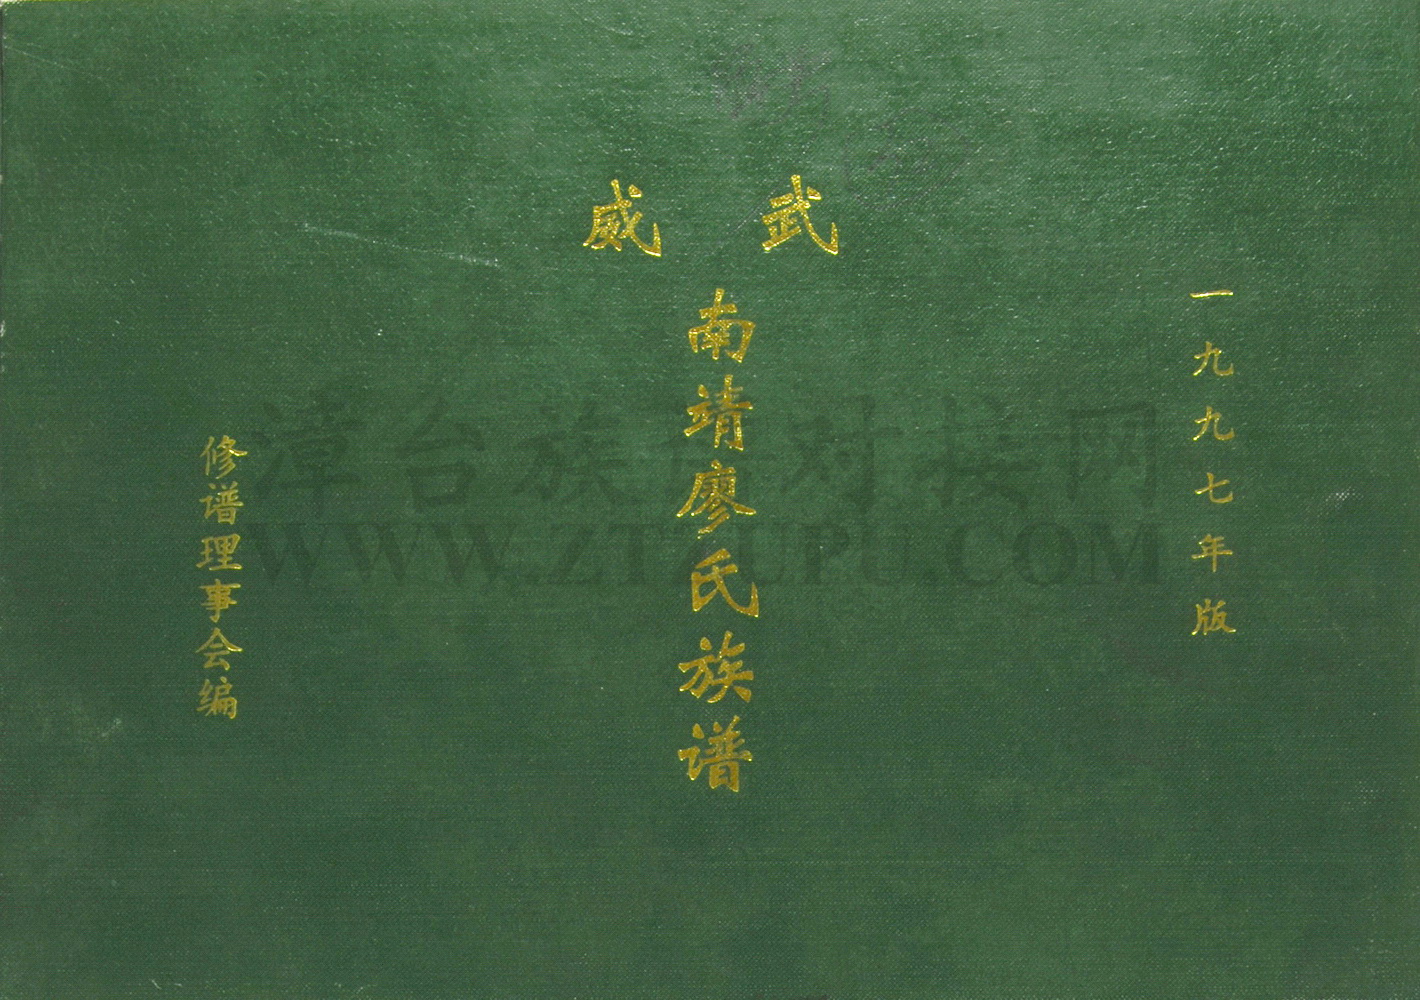 武威
一九九七年版
南靖廖氏族谱
修谱理事会编
漳台族谱对接网
WWW.ZTZUPU.COM